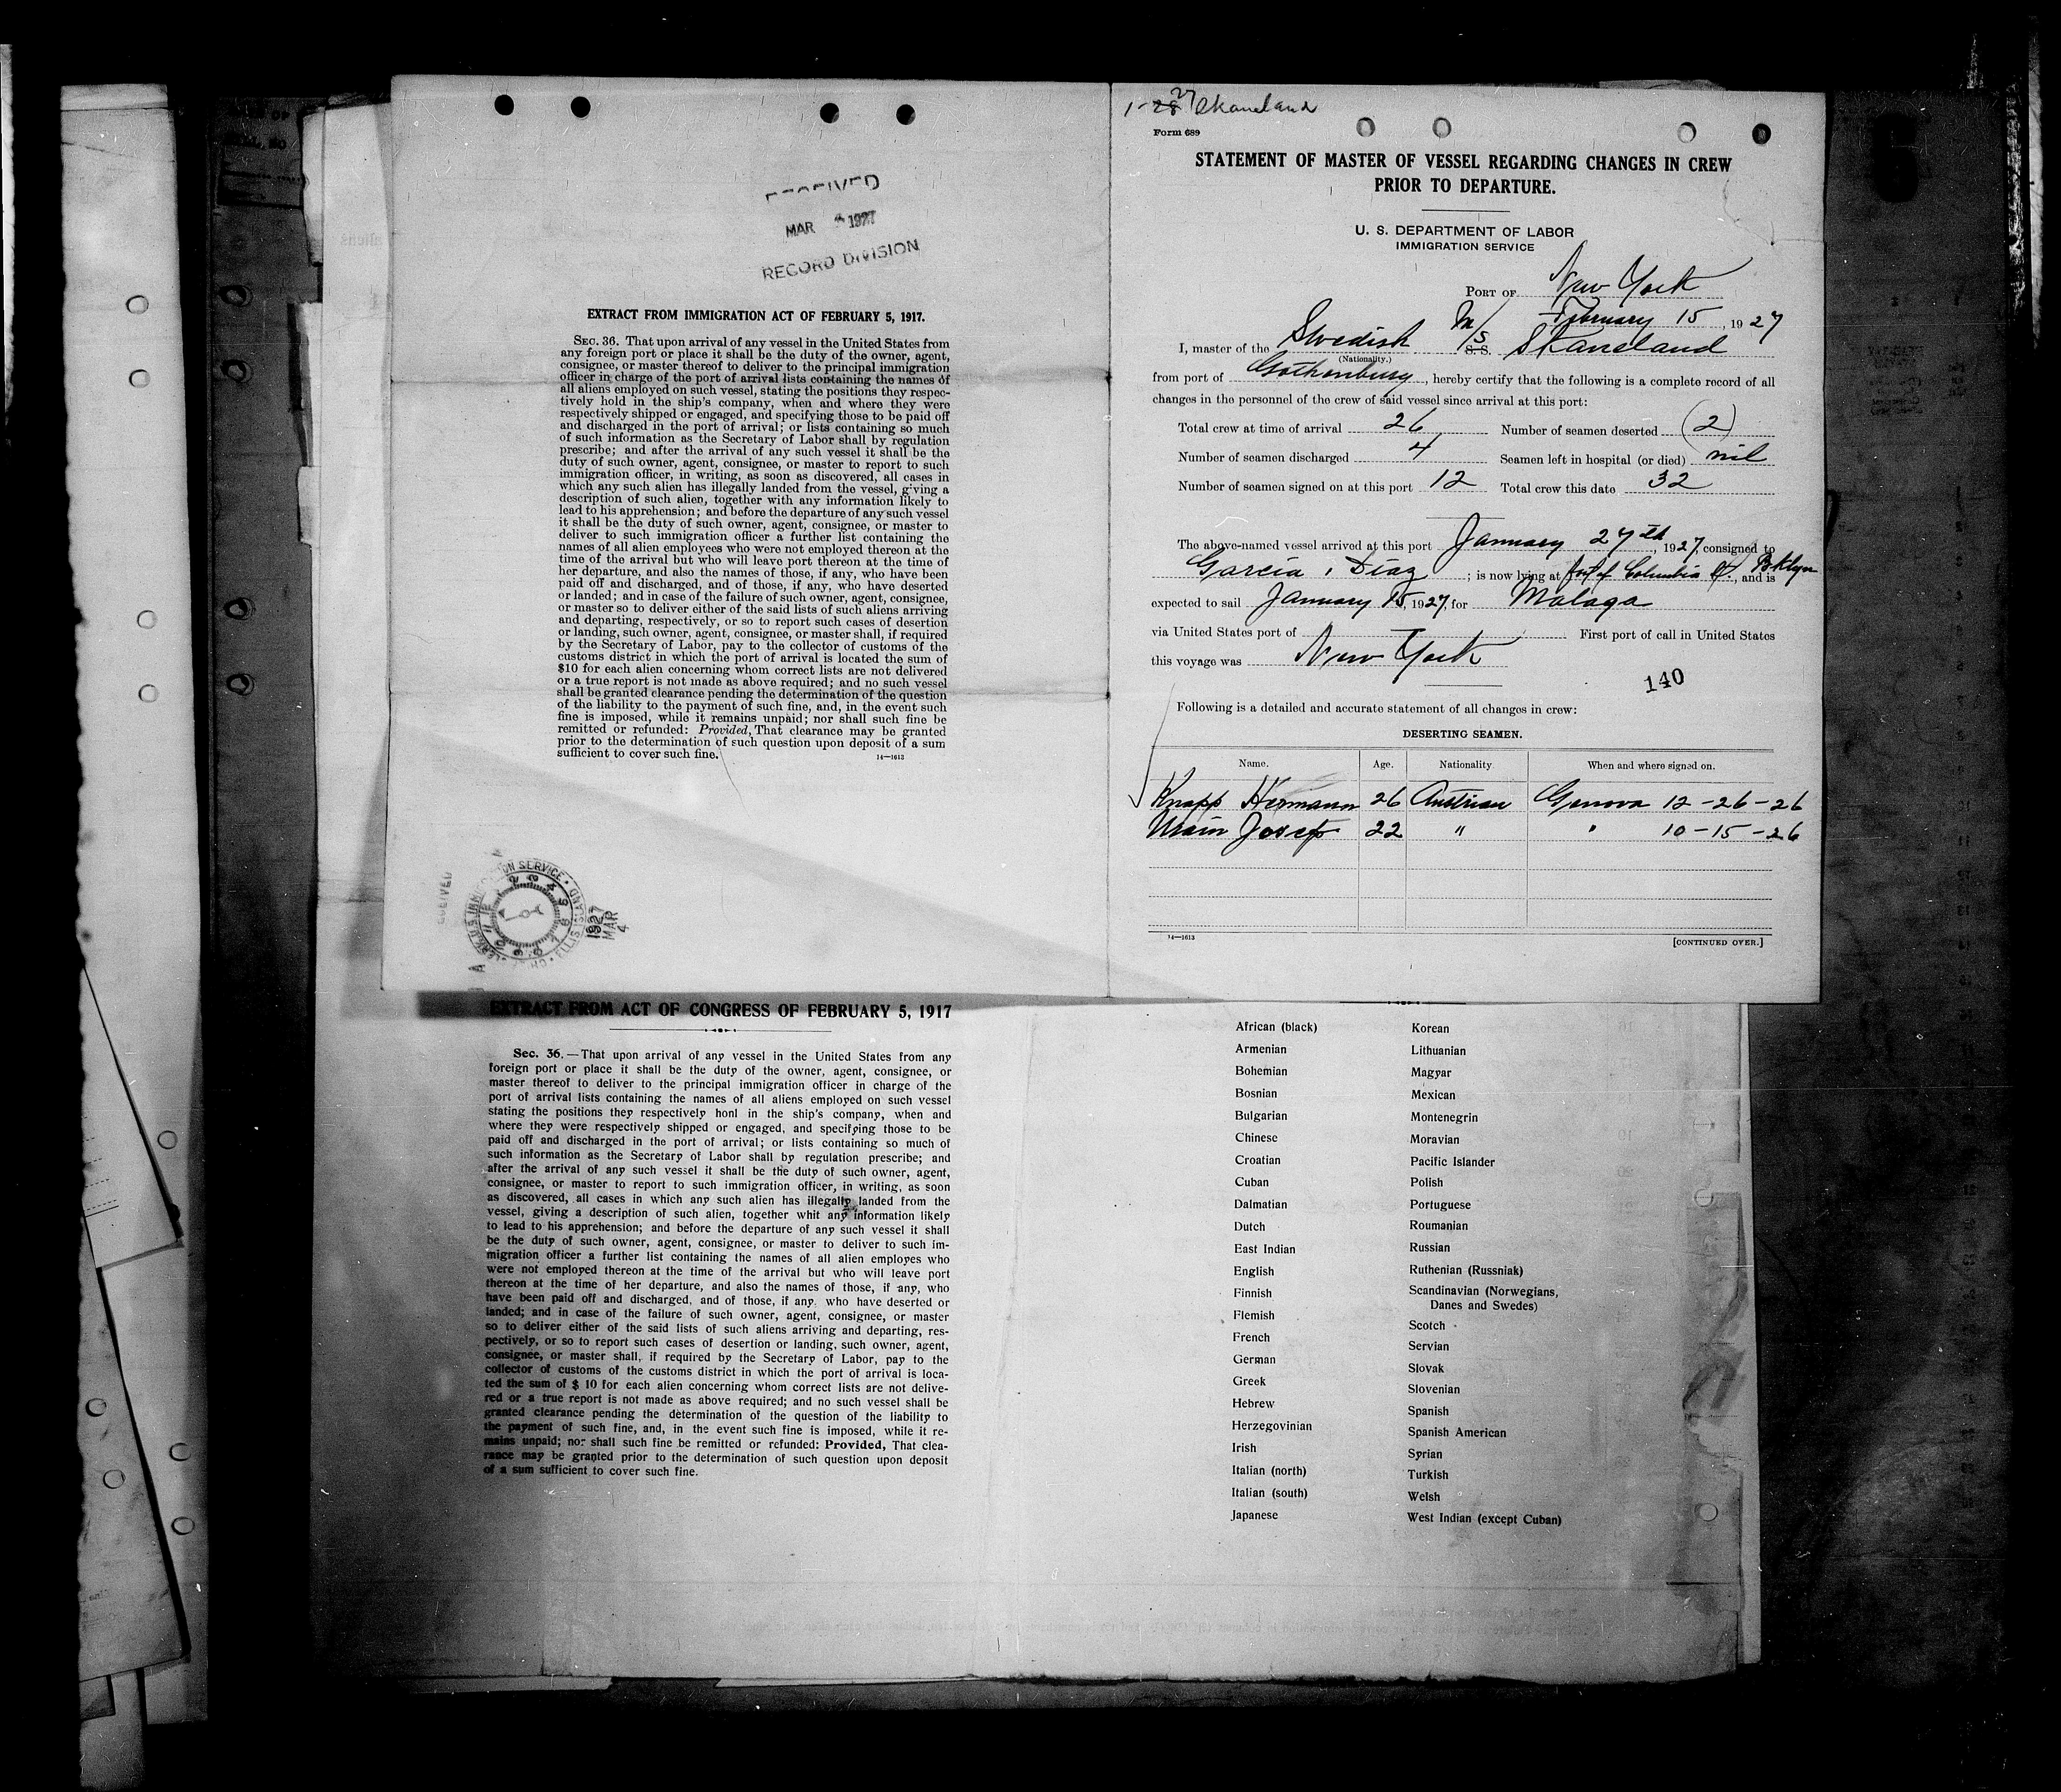 RECEIVED
MAR 1927
RECORD DIVISION
EXTRACT FROM IMMIGRATION ACT OF FEBRUARY 5, 1917.
SEC. 36. That upon arrival of any vessel in the United States from
any foreign port or place it shall be the duty of the owner, agent,
consignee, or master thereof to deliver to the principal immigration
officer in charge of the port of arrival lists containing the names of
all aliens employed on such vessel, stating the positions they respec-
tively hold in the ship's company, when and where they were
respectively shipped or engaged, and specifying those to be paid off
and discharged in the port of arrival; or lists containing so much
of such information as the Secretary of Labor shall by regulation
prescribe; and after the arrival of any such vessel it shall be the
duty of such owner, agent, consignee, or master to report to such
immigration officer, in writing, as soon as discovered, all cases in
which any such alien has illegally landed from the vessel, giving a
description of such alien, together with any information likely to
lead to his apprehension; and before the departure of any such vessel
it shall be the duty of such owner, agent, consignee, or master to
deliver to such immigration officer a further list containing the
names of all alien employees who were not employed thereon at the
time of the arrival but who will leave port thereon at the time of
her departure, and also the names of those, if any, who have been
paid off and discharged, and of those, if any, who have deserted
or landed; and in case of the failure of such owner, agent, consignee,
or master so to deliver either of the said lists of such aliens arriving
and departing, respectively, or so to report such cases of desertion
or landing, such owner, agent, consignee, or master shall, if required
by the Secretary of Labor, pay to the collector of customs of the
customs district in which the port of arrival is located the sum of
$10 for each alien concerning whom correct lists are not delivered
or a true report is not made as above required; and no such vessel
shall be granted clearance pending the determination of the question
of the liability to the payment of such fine, and, in the event such
fine is imposed, while it remains unpaid; nor shall such fine be
remitted or refunded: Provided, That clearance may be granted
prior to the determination of such question upon deposit of a sum
sufficient to cover such fine.
14—1613
1927
MAR
4
1-28 27 Skaneland
Form 689
STATEMENT OF MASTER OF VESSEL REGARDING CHANGES IN CREW
PRIOR TO DEPARTURE.
U. S. DEPARTMENT OF LABOR
IMMIGRATION SERVICE
PORT OF New York
February 15, 1927
I, master of the Swedish M/S S.S. Skaneland
(Nationality.)
from port of Gothenburg, hereby certify that the following is a complete record of all
changes in the personnel of the crew of said vessel since arrival at this port:
Total crew at time of arrival 26 Number of seamen deserted (2)
Number of seamen discharged 4 Seamen left in hospital (or died) nil
Number of seamen signed on at this port 12 Total crew this date 32
The above-named vessel arrived at this port January 27th, 1927, consigned to
Garcia & Diaz; is now lying at foot of Columbia St., Bklyn and is
expected to sail January 15, 1927, for Malaga
via United States port of First port of call in United States
this voyage was New York
140
Following is a detailed and accurate statement of all changes in crew:
DESERTING SEAMEN.
Name. Age. Nationality When and where signed on.
Knapp Hermann 26 Austrian Genova 12-26-26
Josef 22 " " 10-15-26
14—1613
[CONTINUED OVER.]
EXTRACT FROM ACT OF CONGRESS OF FEBRUARY 5, 1917
Sec. 36.—That upon arrival of any vessel in the United States from any
foreign port or place it shall be the duty of the owner, agent, consignee, or
master thereof to deliver to the principal immigration officer in charge of the
port of arrival lists containing the names of all aliens employed on such vessel
stating the positions they respectively honl in the ship's company, when and
where they were respectively shipped or engaged, and specifying those to be
paid off and discharged in the port of arrival; or lists containing so much of
such information as the Secretary of Labor shall by regulation prescribe; and
after the arrival of any such vessel it shall be the duty of such owner, agent,
consignee, or master to report to such immigration officer, in writing, as soon
as discovered, all cases in which any such alien has illegally landed from the
vessel, giving a description of such alien, together whit any information likely
to lead to his apprehension; and before the departure of any such vessel it shall
be the duty of such owner, agent, consignee, or master to deliver to such im-
migration officer a further list containing the names of all alien employes who
were not employed thereon at the time of the arrival but who will leave port
thereon at the time of her departure, and also the names of those, if any, who
have been paid off and discharged, and of those, if any. who have deserted or
landed; and in case of the failure of such owner, agent, consignee, or master
so to deliver either of the said lists of such aliens arriving and departing, res-
pectively, or so to report such cases of desertion or landing, such owner, agent,
consignee, or master shall, if required by the Secretary of Labor, pay to the
collector of customs of the customs district in which the port of arrival is loca-
ted the sum of $ 10 for each alien concerning whom correct lists are not delive-
red or a true report is not made as above required; and no such vessel shall be
granted clearance pending the determination of the question of the liability to
the payment of such fine, and, in the event such fine is imposed, while it re-
mains unpaid; nor shall such fine be remitted or refunded: Provided, That clea-
rance may be granted prior to the determination of such question upon deposit
of a sum sufficient to cover such fine.
African (black) Korean
Armenian Lithuanian
Bohemian Magyar
Bosnian Mexican
Bulgarian Montenegrin
Chinese Moravian
Croatian Pacific Islander
Cuban Polish
Dalmatian Portuguese
Dutch Roumanian
East Indian Russian
English Ruthenian (Russniak)
Finnish Scandinavian (Norwegians,
Danes and Swedes)
Flemish Scotch
French Servian
German Slovak
Greek Slovenian
Hebrew Spanish
Herzegovinian Spanish American
Irish Syrian
Italian (north) Turkish
Italian (south) Welsh
Japanese West Indian (except Cuban)